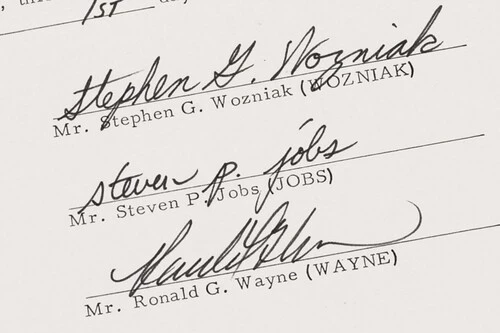 1ST
Stephen G. Wozniak
Mr. Stephen G. Wozniak (WOZNIAK)
steven p. jobs
Mr. Steven P. Jobs (JOBS)
Mr. Ronald G. Wayne (WAYNE)